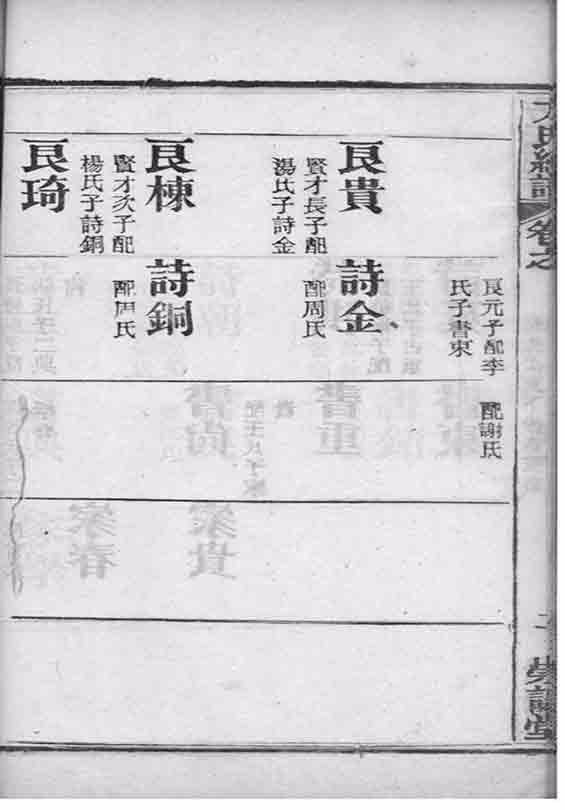 卷之
良元子配李
氏子書東
配謝氏
良貴
賢才長子配
湯氏子詩金
詩金
配周氏
良棟
賢才次子配
楊氏子詩銅
詩銅
配周氏
良琦